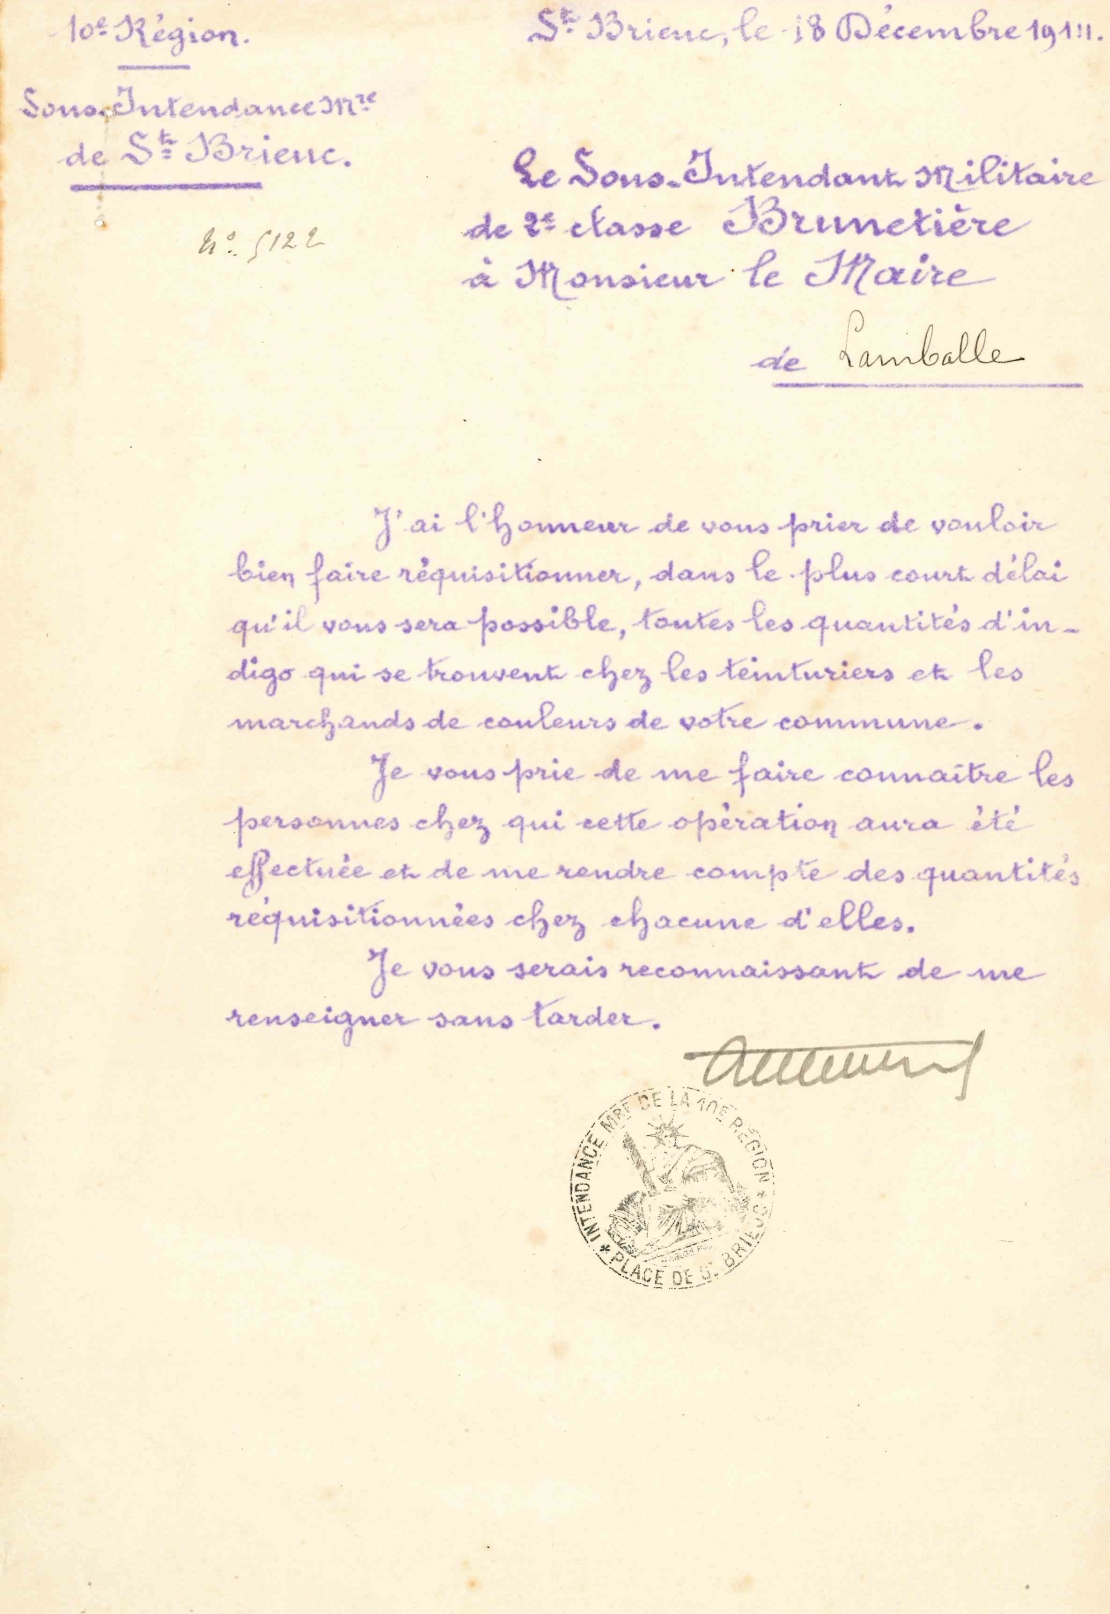 10e Région.
St Brieuc, le 18 Décembre 1914.
Sous-Intendance Mre
de St Brieuc.
N° 5122
Le Sous-Intendant Militaire
de 2e classe Brunetière
à Monsieur le Maire
de Lamballe
J'ai l'honneur de vous prier de vouloir
bien faire réquisitionner, dans le plus court délai
qu'il vous sera possible, toutes les quantités d'in-
digo qui se trouvent chez les teinturiers et les
marchands de couleurs de votre commune.
Je vous prie de me faire connaître les
personnes chez qui cette opération aura été
effectuée et de me rendre compte des quantités
réquisitionnées chez chacune d'elles.
Je vous serais reconnaissant de me
renseigner sans tarder.
INTENDANCE MRE DE LA 10E RÉGION
* PLACE DE ST BRIEUC *